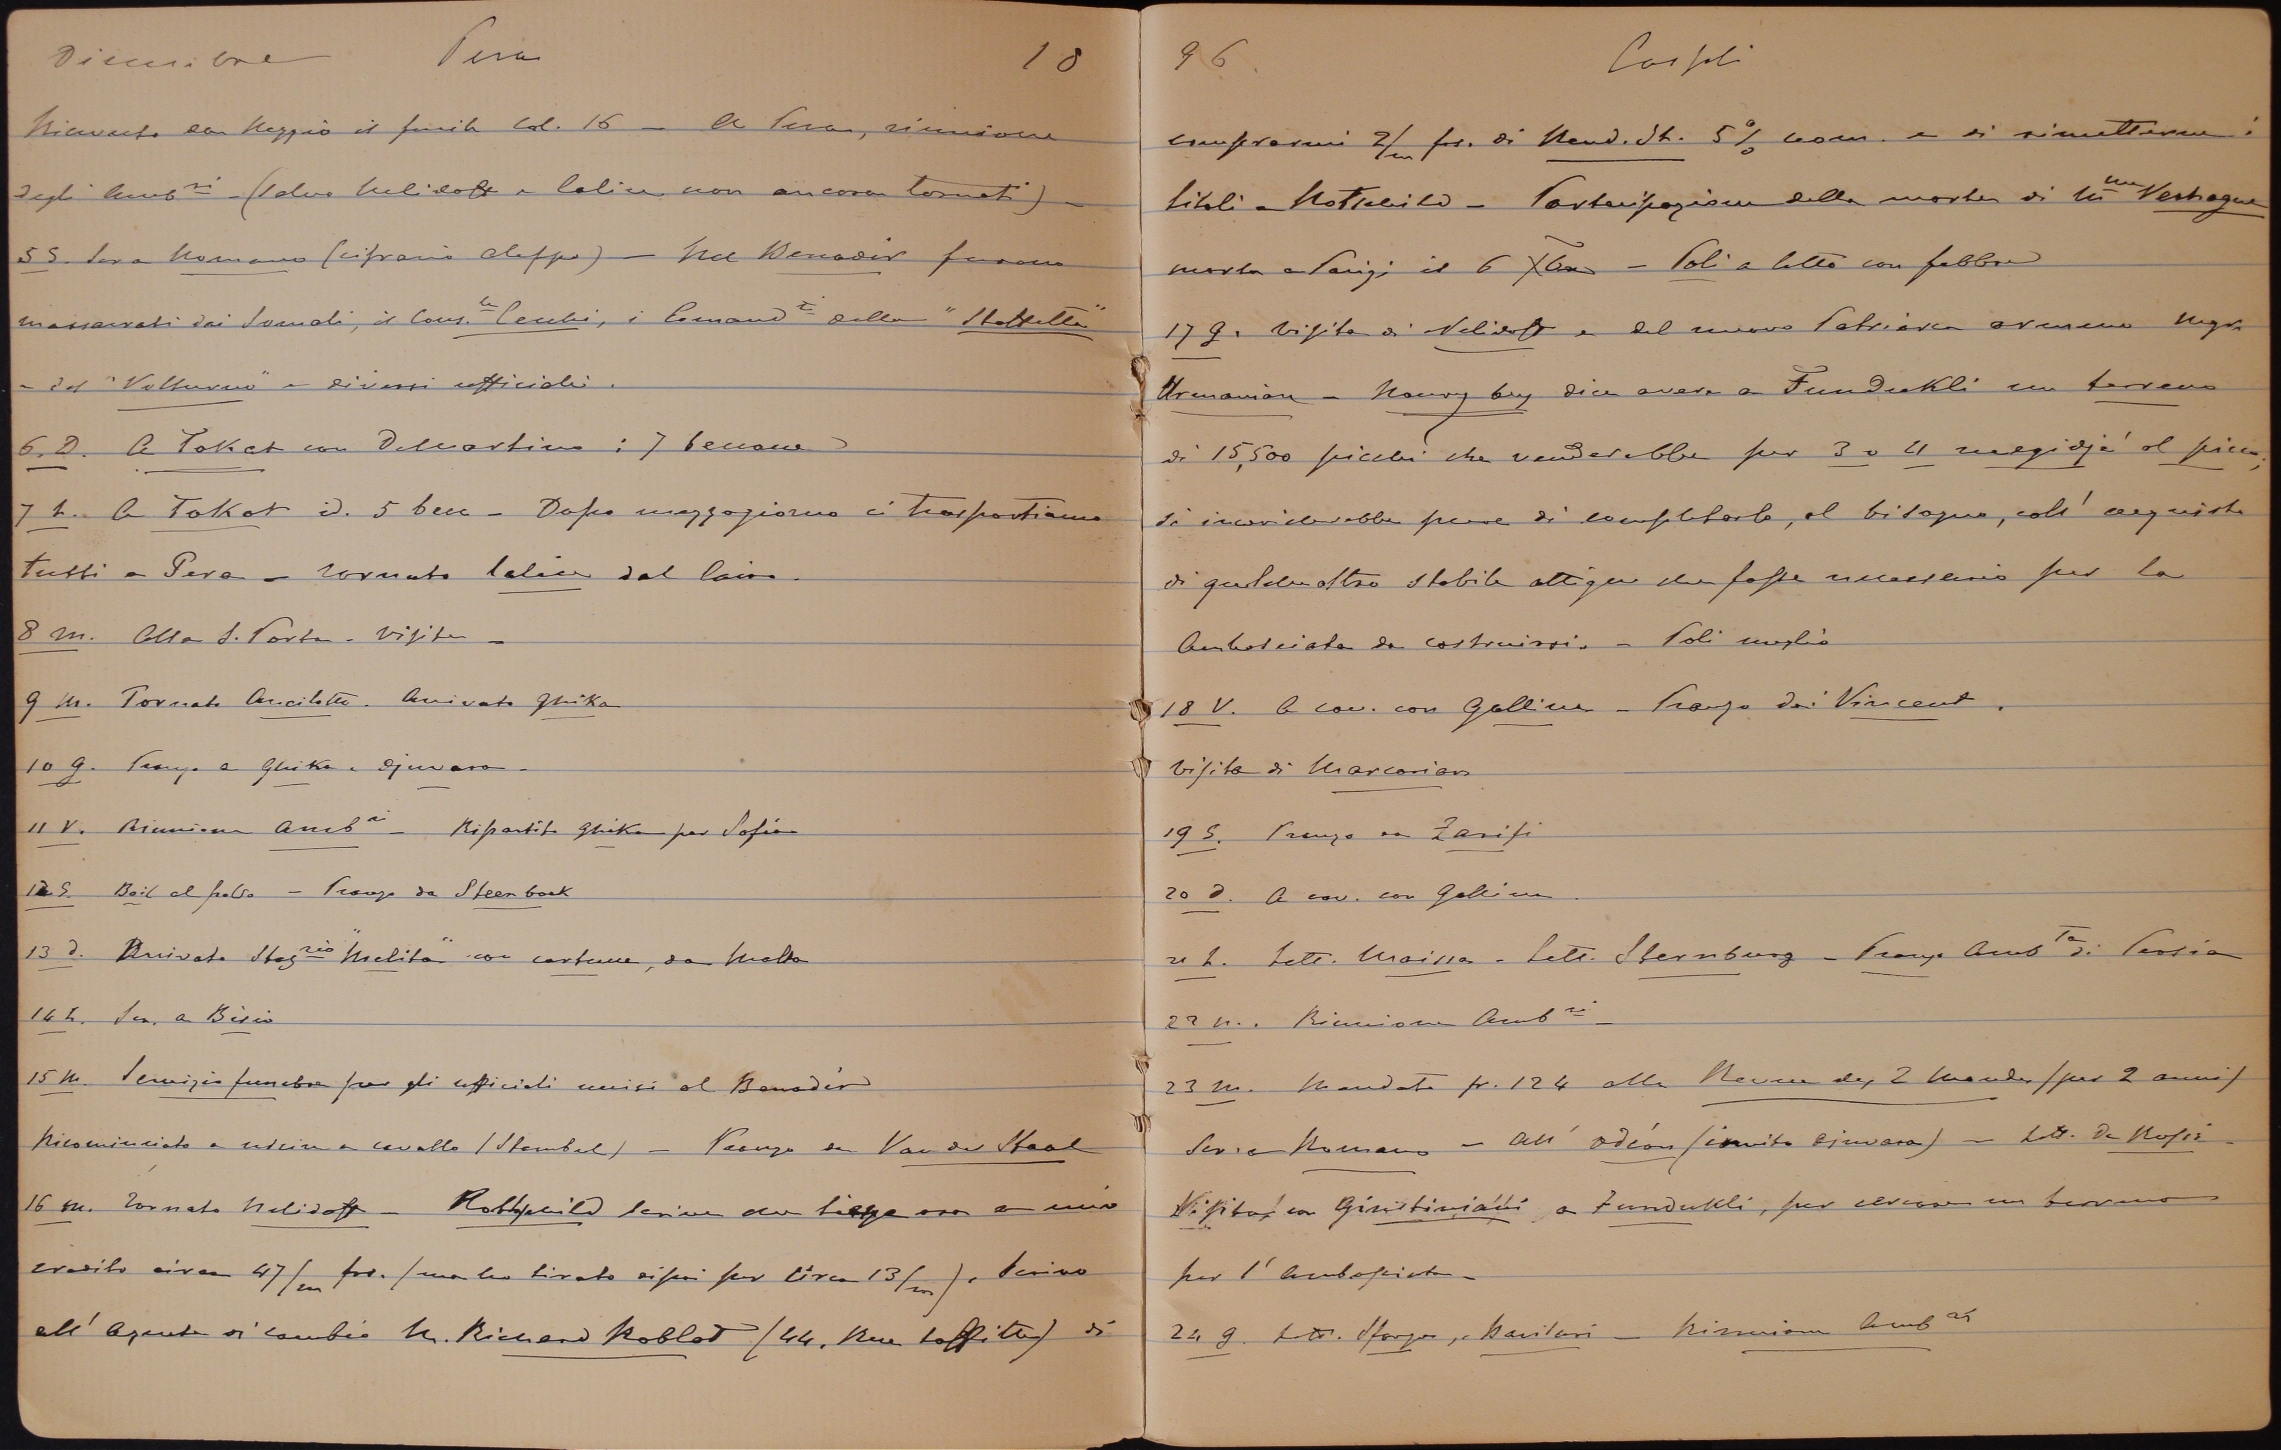 Dicembre Pera 18
Ricevuto da Reggio il fucile Cal. 16 - A Pera, riunione
degli Amb.ri - (salvo Nelidoff e Calice non ancora tornati) -
5 S. Scr. a Romano (cifrario Aleppo) - Nel Benadir furono
massacrati dai Somali, il Cons.le Cecchi, i Comand.ti della "Staffetta"
e del "Volturno" e diversi ufficiali.
6. D. A Tokat con DeMartino: 7 beccacce
7 L. A Tokat id. 5 becc - Dopo mezzogiorno ci trasportiamo
tutti a Pera - Tornato Calice dal Cairo.
8 M. Alla S. Porta - Visite -
9 M. Tornato Ancilotto. Arrivato Ghika
10 G. Pranzo a Ghika e Djuvara -
11 V. Riunione Amb.ri - Ripartito Ghika per Sofia
12 S. Bail al palo - Pranzo da Steenbock
13 D. Arrivato Staz.rio "Melita" con cartucce, da Malta
14 L. Scr. a Bisio
15 M. Servizio funebre per gli ufficiali uccisi al Benadir
Ricominciato a uscire a cavallo (Stambul) - Pranzo da Van der Staal
16 M. Tornato Nelidoff - Rothschild scrive che tiene ora a mio
credito circa 47/m frs. (ma ho tirato dipoi per circa 13/m). Scrivo
all' Agente di cambio M. Richard Roblot (44, Rue Laffitte) di
96 Cospoli
comprarmi 2/m fr. di Rend. It. 5% nom. e di rimetterne i
titoli a Rotschild - Partecipazione della morte di Mme Vestrague
morta a Parigi il 6 Xbre - Poli a letto con febbre
17 G. Visita di Nelidoff e del nuovo Patriarca armeno Mgr.
Ormanian - Noury bey dice avere a Fundukli un terreno
di 15,500 picchi che venderebbe per 3 o 4 megidjé al picco;
si incaricherebbe pure di completarlo, al bisogno, coll' acquisto
di qualche altro stabile attiguo che fosse necessario per la
Ambasciata da costruirsi. - Poli meglio
18 V. A cav. con Gallina - Pranzo dai Vincent.
Visita di Marcarian
19 S. Pranzo da Zarifi
20 D. A cav. con Gallina.
21 L. Lett. Maissa - Lett. Sternburg - Pranzo Amb.ta di Persia
22 M. Riunione Amb.ri -
23 M. Mandato fr. 124 alla Revue des 2 Mondes (per 2 anni)
Scr. a Romano - All' Odéon (invito Djuvara) - Lett. Da Rossi -
Visita con Giustiniani a Fundukli, per cercare un terreno
per l'Ambasciata -
24 G. Lett. Sforza, - Riunione Amb.ri